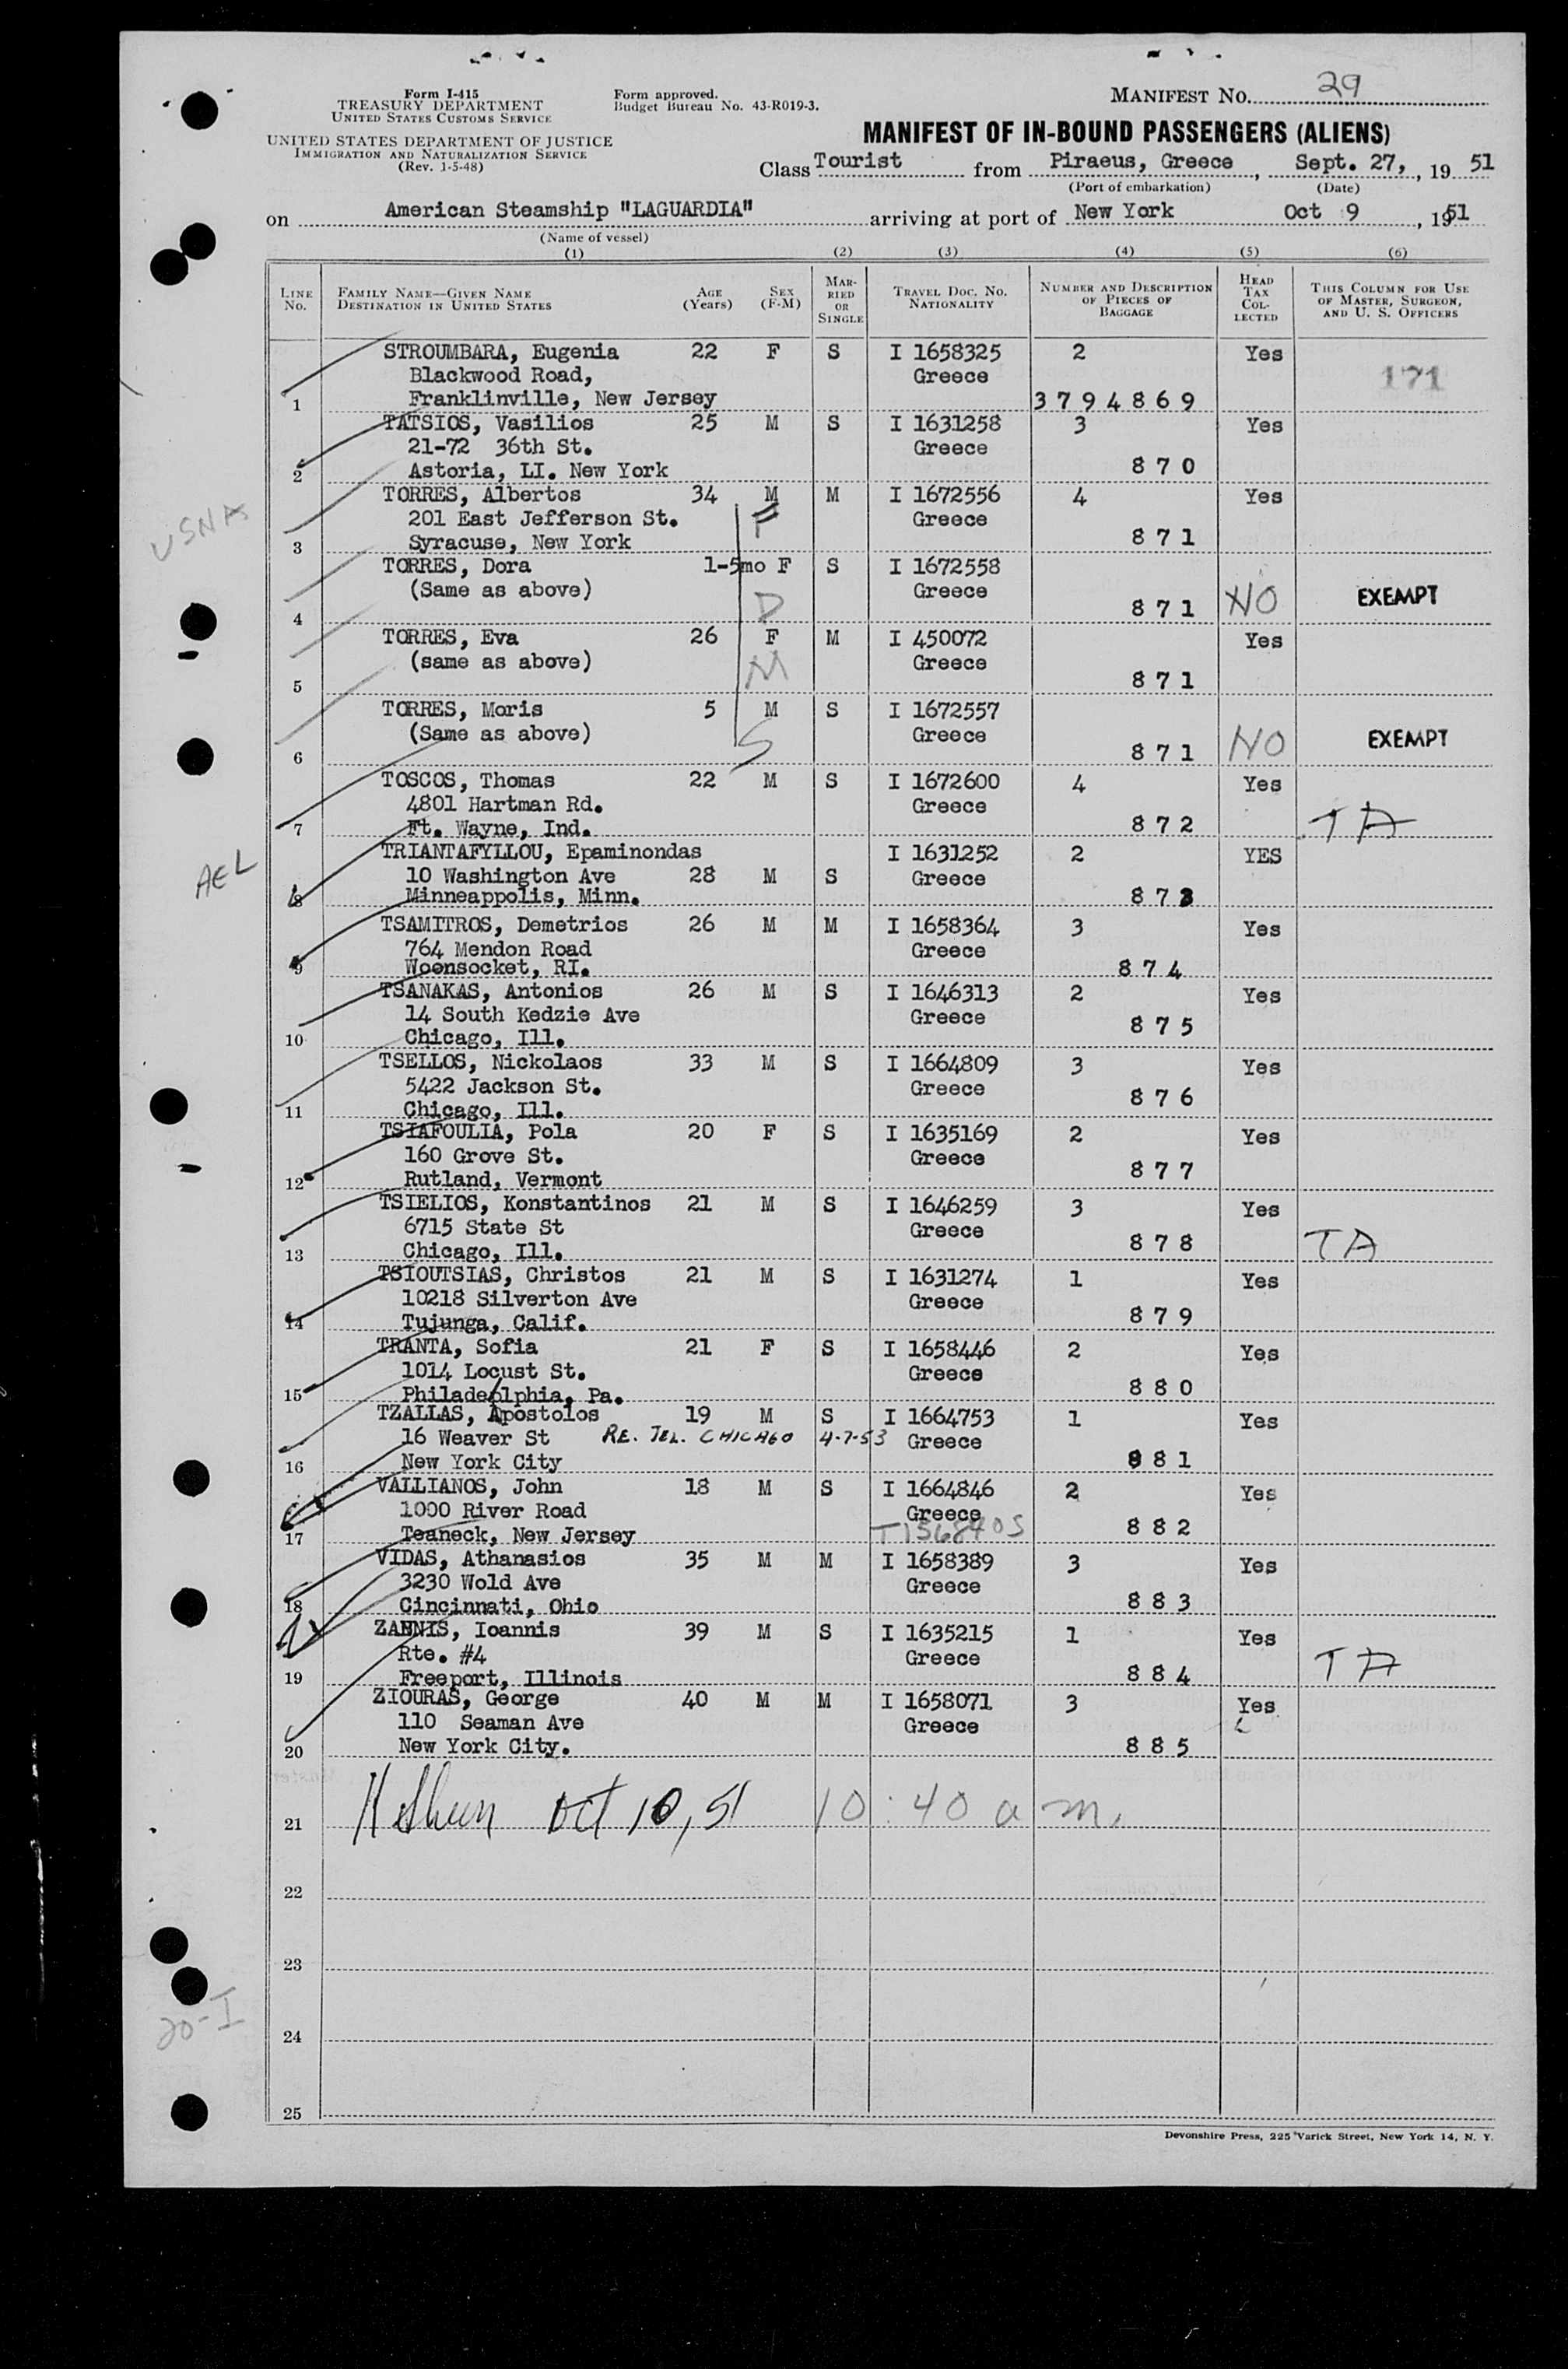 Form I-415
TREASURY DEPARTMENT
UNITED STATES CUSTOMS SERVICE
UNITED STATES DEPARTMENT OF JUSTICE
IMMIGRATION AND NATURALIZATION SERVICE
(Rev. 1-5-48)
Form approved.
Budget Bureau No. 43-R019-3.
MANIFEST NO. 29
MANIFEST OF IN-BOUND PASSENGERS (ALIENS)
Class Tourist from Piraeus, Greece, Sept. 27, , 19 51
(Port of embarkation) (Date)
on American Steamship "LAGUARDIA" arriving at port of New York Oct 9 , 1951
(Name of vessel)
(1) (2) (3) (4) (5) (6)
LINE NO. FAMILY NAME—GIVEN NAME DESTINATION IN UNITED STATES AGE (Years) SEX (F-M) MARRIED OR SINGLE TRAVEL DOC. NO. NATIONALITY NUMBER AND DESCRIPTION OF PIECES OF BAGGAGE HEAD TAX COLLECTED THIS COLUMN FOR USE OF MASTER, SURGEON, AND U. S. OFFICERS
STROUMBARA, Eugenia 22 F S I 1658325 2 Yes
Blackwood Road, Greece 171
1 Franklinville, New Jersey 3794869
TATSIOS, Vasilios 25 M S I 1631258 3 Yes
21-72 36th St. Greece
2 Astoria, LI. New York 870
TORRES, Albertos 34 M M I 1672556 4 Yes
USNA 201 East Jefferson St. F Greece
3 Syracuse, New York 871
TORRES, Dora 1-5mo F S I 1672558
(Same as above) D Greece NO EXEMPT
4 871
TORRES, Eva 26 F M I 450072 Yes
(same as above) M Greece
5 871
TORRES, Moris 5 M S I 1672557
(Same as above) S Greece NO EXEMPT
6 871
TOSCOS, Thomas 22 M S I 1672600 4 Yes
4801 Hartman Rd. Greece
7 Ft. Wayne, Ind. 872 TA
TRIANTAFYLLOU, Epaminondas I 1631252 2 YES
AEL 10 Washington Ave 28 M S Greece
8 Minneappolis, Minn. 873
TSAMITROS, Demetrios 26 M M I 1658364 3 Yes
764 Mendon Road Greece
9 Woonsocket, RI. 874
TSANAKAS, Antonios 26 M S I 1646313 2 Yes
14 South Kedzie Ave Greece
10 Chicago, Ill. 875
TSELLOS, Nickolaos 33 M S I 1664809 3 Yes
5422 Jackson St. Greece
11 Chicago, Ill. 876
TSIAFOULIA, Pola 20 F S I 1635169 2 Yes
160 Grove St. Greece
12 Rutland, Vermont 877
TSIELIOS, Konstantinos 21 M S I 1646259 3 Yes
6715 State St Greece
13 Chicago, Ill. 878 TA
TSIOUTSIAS, Christos 21 M S I 1631274 1 Yes
10218 Silverton Ave Greece
14 Tujunga, Calif. 879
TRANTA, Sofia 21 F S I 1658446 2 Yes
1014 Locust St. Greece
15 Philadealphia, Pa. 880
TZALLAS, Apostolos 19 M S I 1664753 1 Yes
16 Weaver St RE. TEL. CHICAGO 4-7-53 Greece
16 New York City 881
VALLIANOS, John 18 M S I 1664846 2 Yes
1000 River Road Greece
17 Teaneck, New Jersey T1568405 882
VIDAS, Athanasios 35 M M I 1658389 3 Yes
3230 Wold Ave Greece
18 Cincinnati, Ohio 883
ZANNIS, Ioannis 39 M S I 1635215 1 Yes
Rte. #4 Greece
19 Freeport, Illinois 884 TA
ZIOURAS, George 40 M M I 1658071 3 Yes
110 Seaman Ave Greece
20 New York City. 885
21 Oct 10, 51 10:40 a m.
22
23
20-I
24
25
Devonshire Press, 225 Varick Street, New York 14, N. Y.